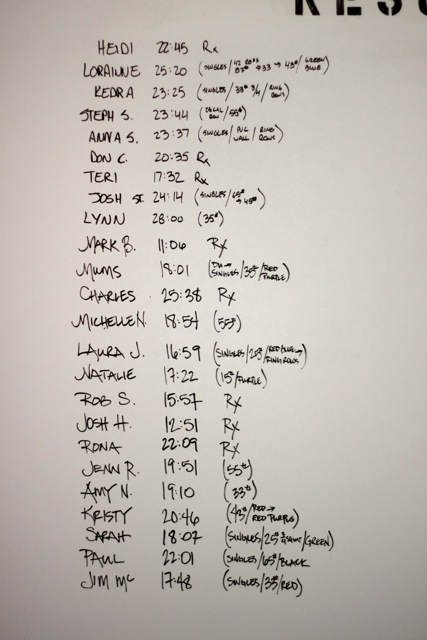 HEIDI 22:45 Rx
LORAINNE 25:20 (SINGLES/ → 33 → 43#/GREEN BLUE
KEDRA 23:25 (SINGLES/33# 3/4/RING ROWS)
STEPH S. 23:44 ( ROW/55#)
ANNA S. 23:37 (SINGLES/ WALL/RING ROWS)
DON C. 20:35 Rx
TERI 17:32 Rx
JOSH ST. 24:14 (SINGLES/65# → 45#)
LYNN 28:00 (35#)
MARK B. 11:06 Rx
MUMS 18:01 (DU → SINGLES/35#/RED PURPLE)
CHARLES 25:38 Rx
MICHELLE N. 18:54 (55#)
LAURA J. 16:59 (SINGLES/25#/RED/BLUE → RING ROWS)
NATALIE 17:22 (15#/PURPLE)
ROB S. 15:57 Rx
JOSH H. 12:51 Rx
RONA 22:09 Rx
JENN R. 19:51 (55#)
AMY N. 19:10 (33#)
KRISTY 20:46 (43#/RED → RED PURPLE)
SARAH 18:07 (SINGLES/25# /GREEN)
PAUL 22:01 (SINGLES/65#/BLACK
JIM MC 17:48 (SINGLES/35#/RED)